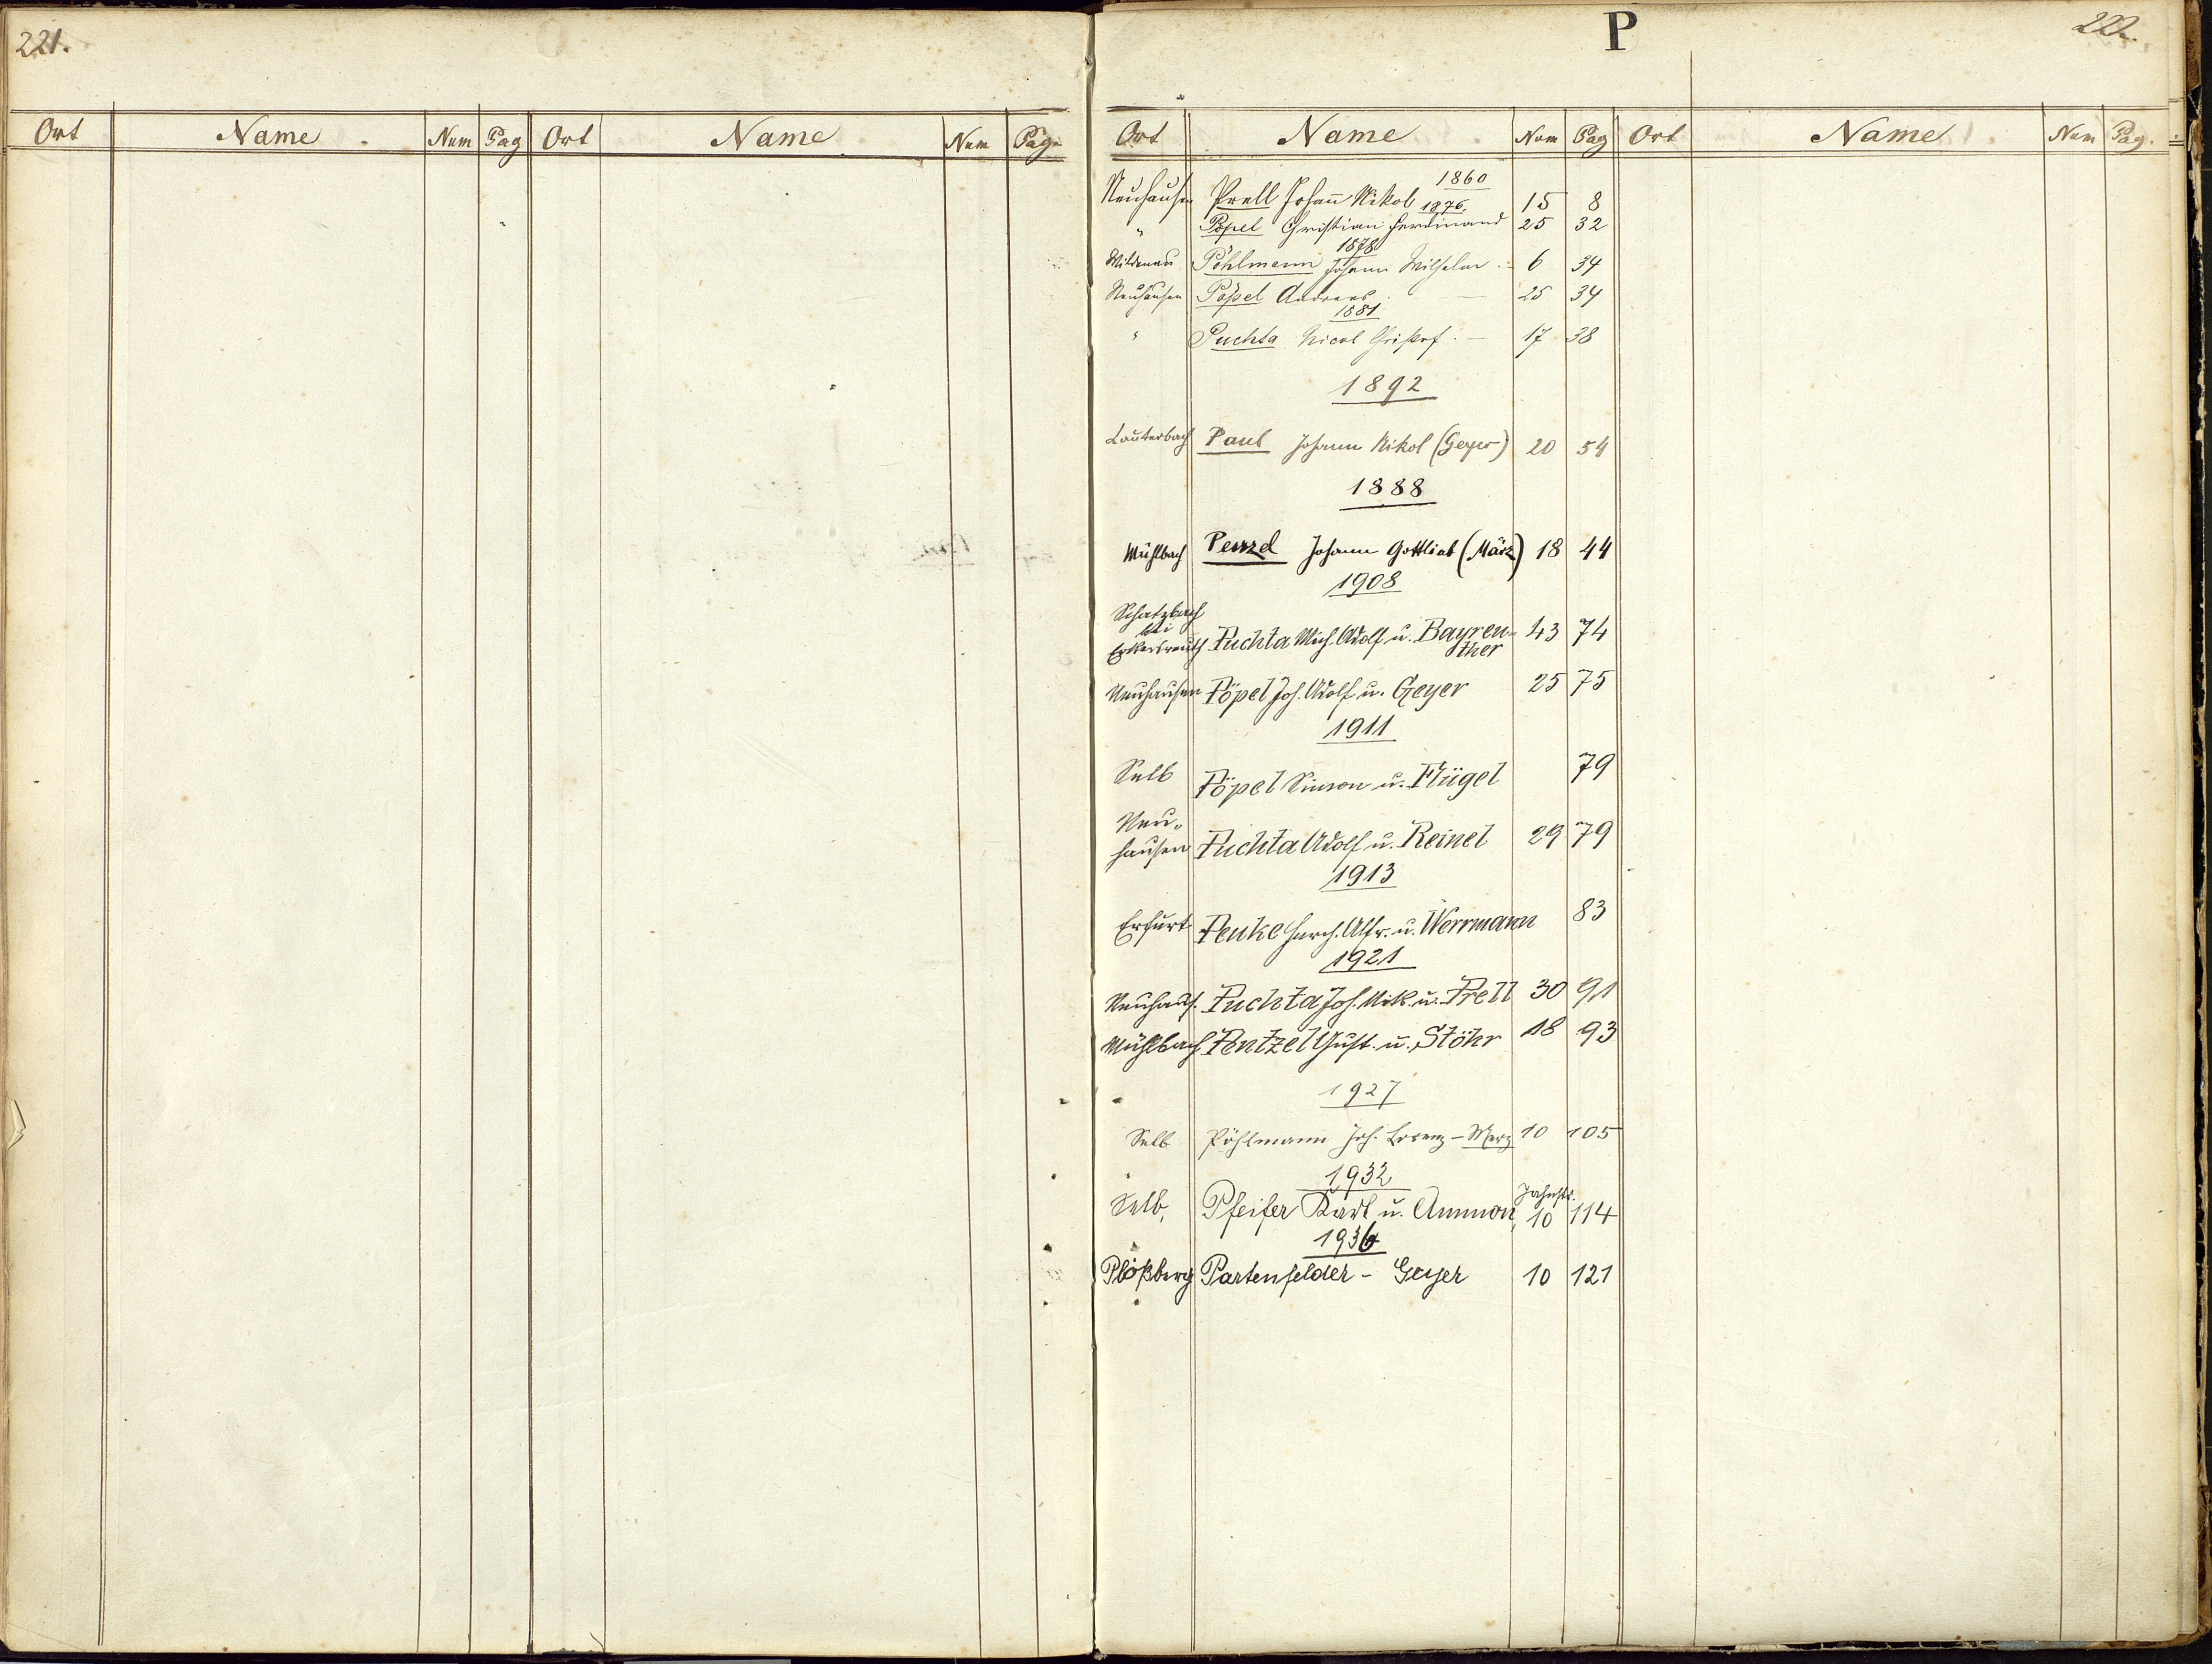 221.
Ort Name. Num Pag Ort Name Num Pag.
P
222.
Ort Name Num Pag Ort Name Num Pag.
1860
Neuhausen Prell Johan̄ Nikol 15 8
1876
" Pöpel Christian Ferdinand 25 32
1878
Wildenau Pöhlmann Johann Wilhelm. - 6 34
Neuhausen Pöpel Andreas. — 25 34
1881
" Puchta Nicol Christof. — 17 38
1892
Lauterbach Paul Johann Nikol (Geyer) 20 54
1888
Mühlbach Penzel Johann Gottlieb (März) 18 44
1908
Schatzbach
bei
Erkersreuth Puchta Mich. Adolf u. Bayreu- 43 74
ther
Neuhausen Pöpel Joh. Adolf u. Geyer 25 75
1911
Selb Pöpel Simon u. Flügel 79
Neu-
hausen Puchta Adolf u. Reinel 29 79
1913
Erfurt Penke Alfr. u. Werrmann 83
1921
Neuhaus. Puchta Joh. Nik. u. Prell 30 91
Mühlbach Pentzel Gust. u. Stöhr 18 93
1927
Selb Pöhlmann Joh. Lorenz - Merz 10 105
1932
Jahnstr.
Selb, Pfeifer Karl u. Ammon, 10 114
1936
Plößberg Partenfelder - Geyer 10 121